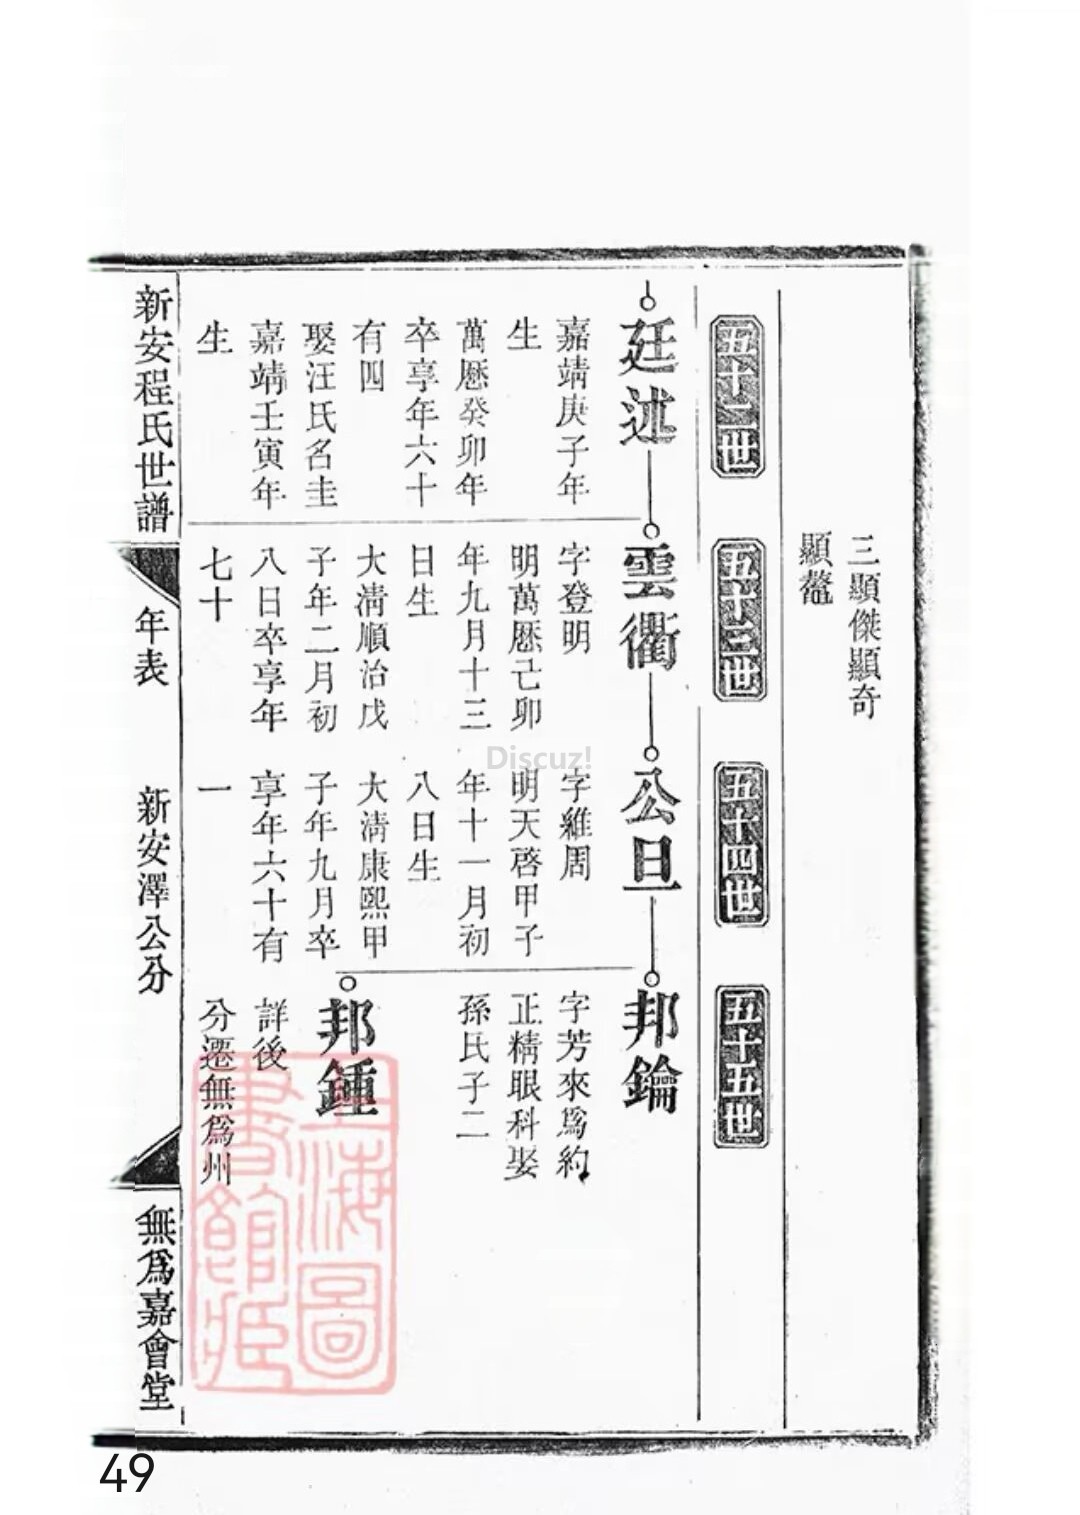 三顯傑顯奇
顯鼇
五十二世
五十三世
五十四世
五十五世
廷述
嘉靖庚子年
生
萬厯癸卯年
卒享年六十
有四
娶汪氏名圭
嘉靖壬寅年
生
雲衢
字登明
明萬厯己卯
年九月十三
日生
大淸順治戊
子年二月初
八日卒享年
七十
公旦
字維周
明天啓甲子
年十一月初
八日生
大淸康熙甲
子年九月卒
享年六十有
一
邦鑰
字芳來爲約
正精眼科娶
孫氏子二
邦鍾
詳後
分遷無爲州
新安程氏世譜
年表
新安澤公分
無爲嘉會堂
上海圖
書館藏
Discuz!
49